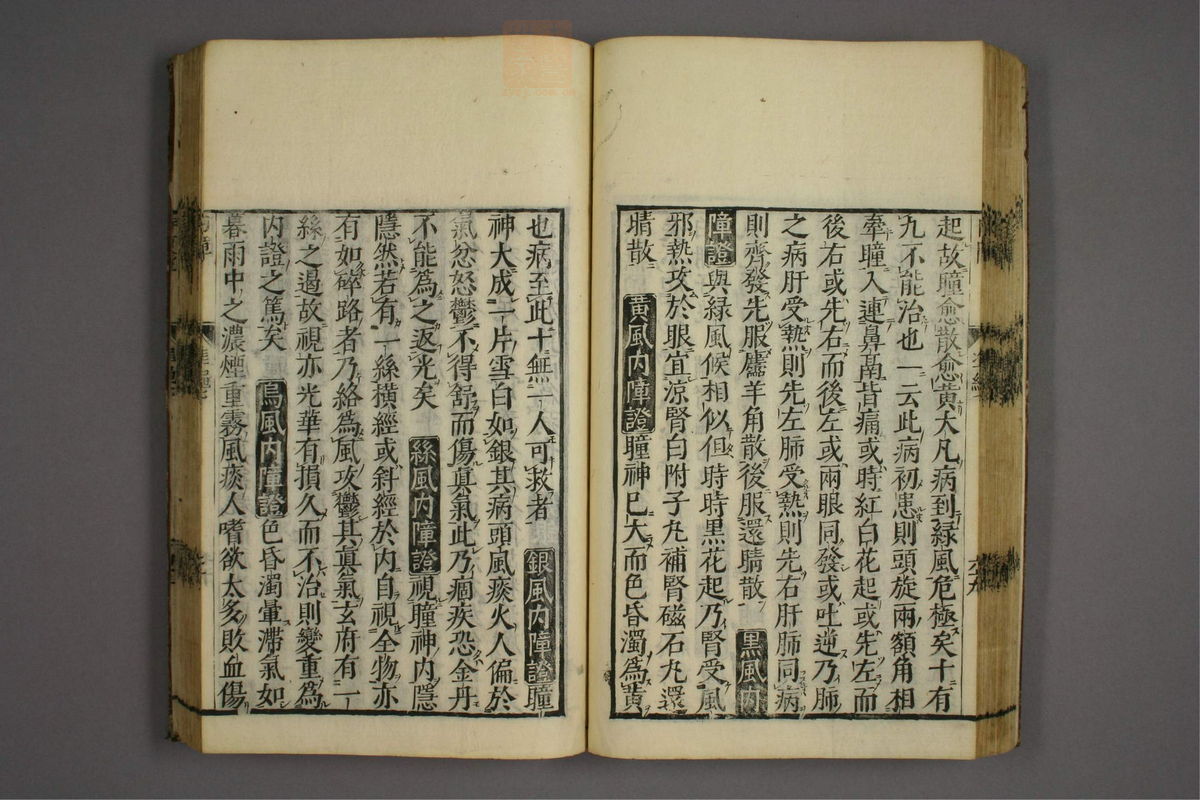 起故瞳愈散愈黄大凡病到緑風危極矣十有
九不能治也一云此病初患則頭旋兩額角相
牽瞳人連鼻鬲皆痛或時紅白花起或先左而
後右或先右而後左或兩眼同發或吐逆乃肺
之病肝受熱則先左肺受熱則先右肝肺同病
則齊發先服羚羊角散後服還睛散 黒風内
障證與緑風候相似但時時黒花起乃腎受風
邪熱攻於眼宜涼腎白附子丸補腎磁石丸還
睛散 黄風内障證瞳神已大而色昏濁為黄
也病至此十無一人可救者 銀風内障證瞳
神大成一片雪白如銀其病頭風痰火人偏於
氣忿怒鬱不得舒而傷眞氣此乃痼疾恐金丹
不能為之返光矣 絲風内障證視瞳神内隱
隱然若有一絲横經或斜經於内自視全物亦
有如碎路者乃絡為風攻鬱其眞氣玄府有一
絲之遏故視亦光華有損久而不治則變重為
内證之篤矣 烏風内障證色昏濁暈滯氣如
暮雨中之濃煙重霧風痰人嗜欲太多敗血傷